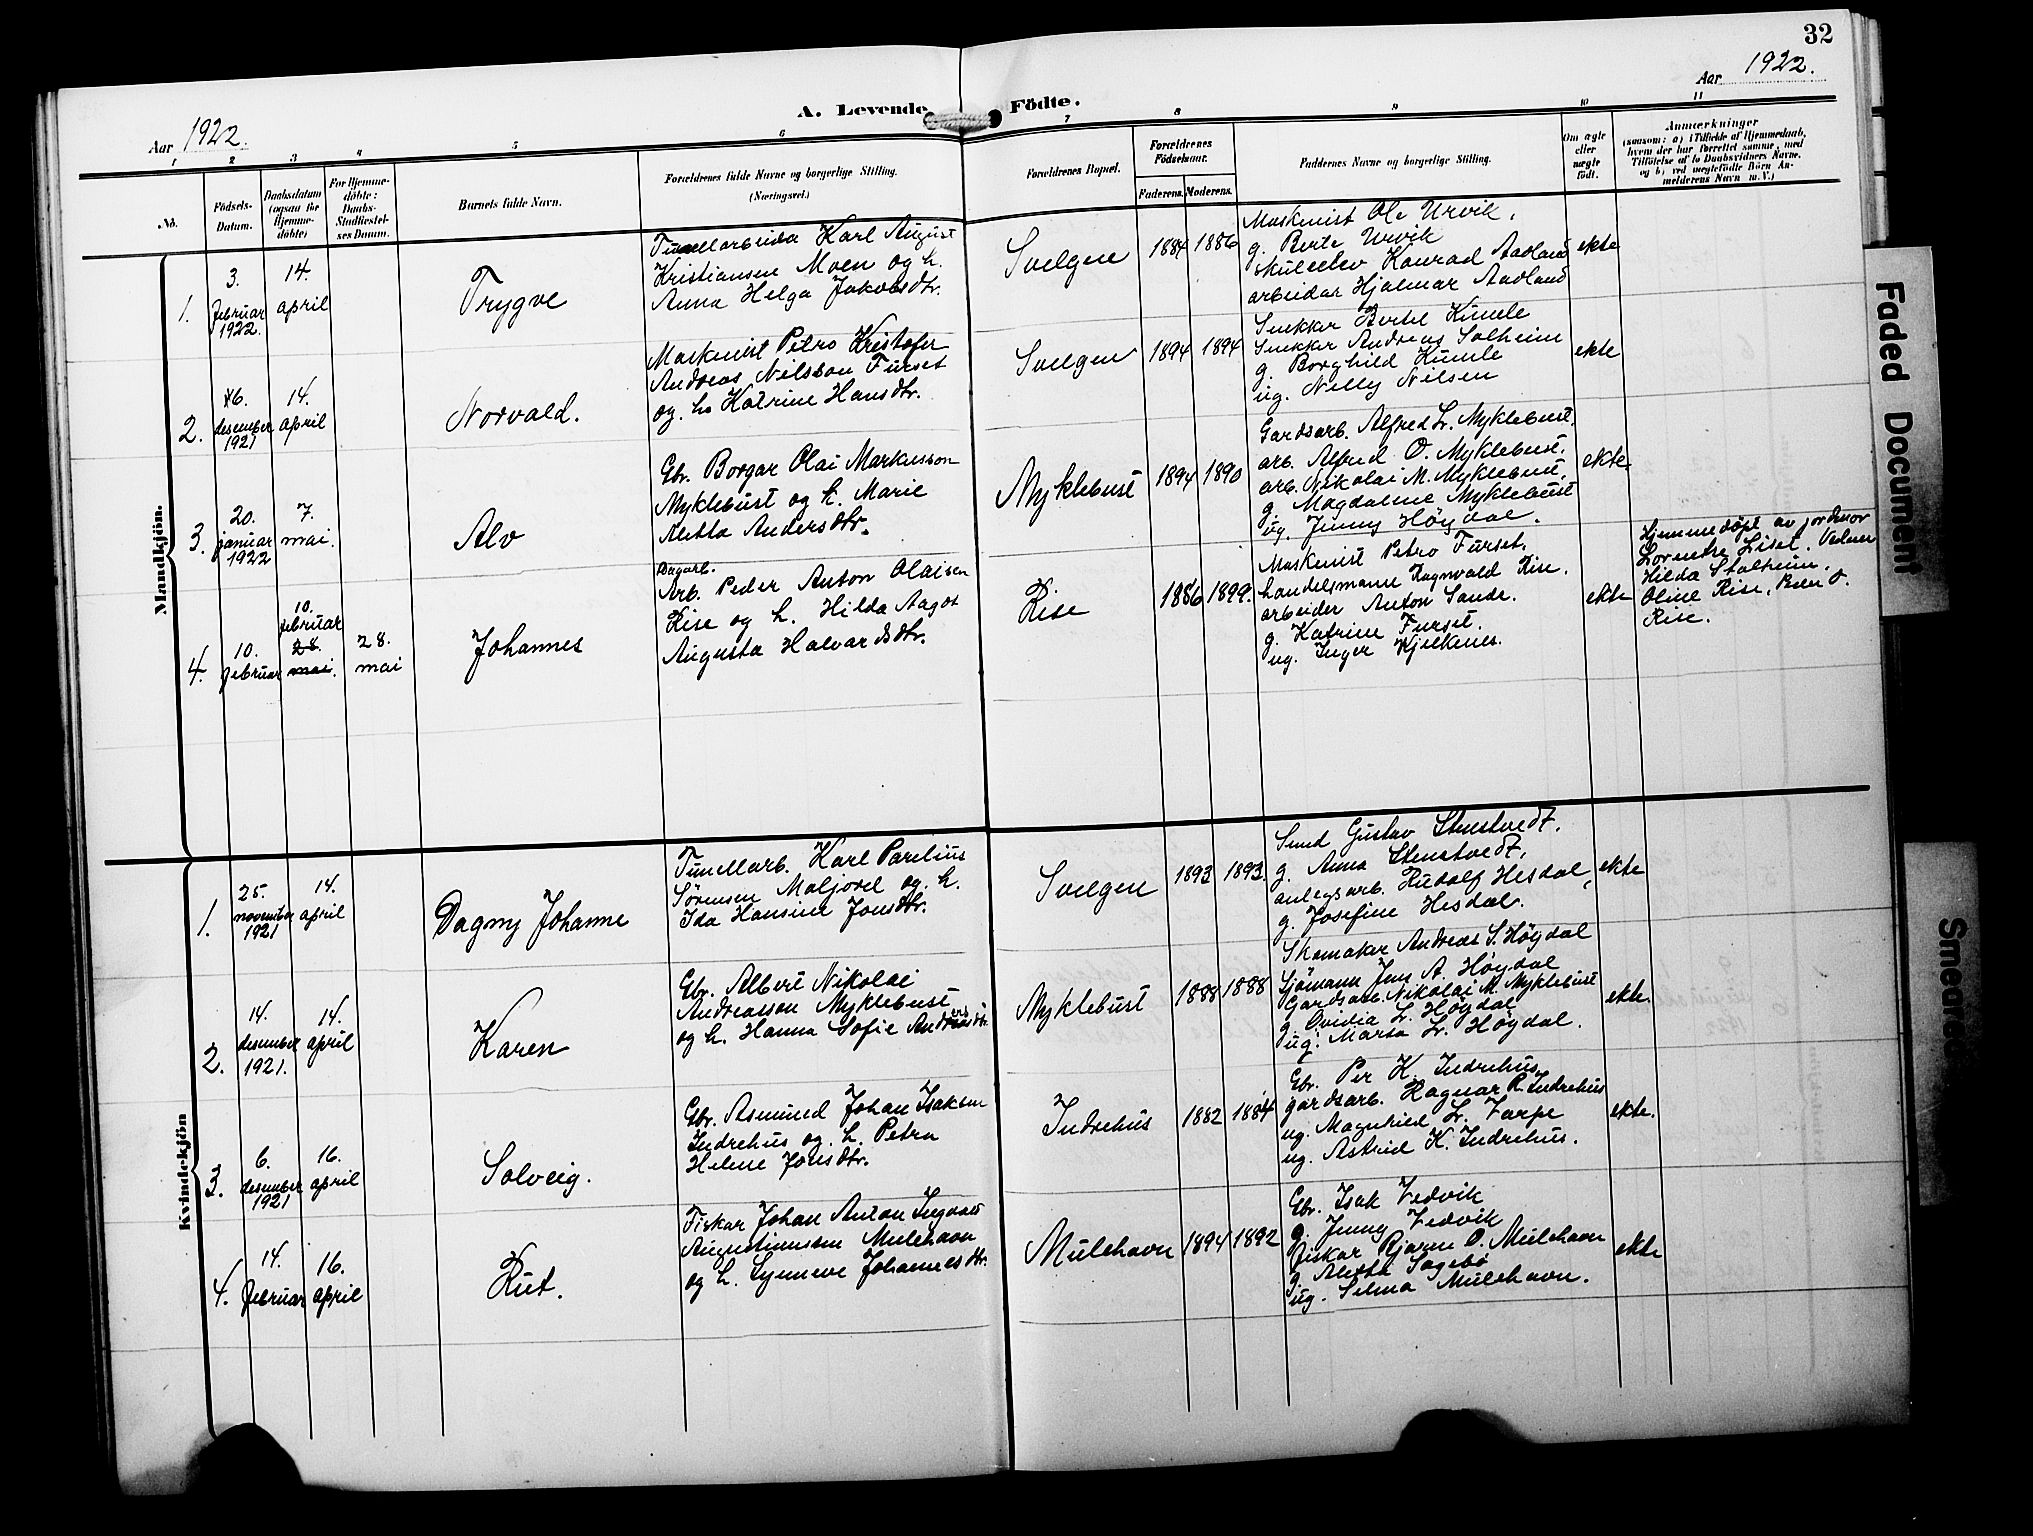 32
Aar 1922.
A. Levende Födte.
Aar 1922.
1 2 3 4 5 6 7 8 9 10 11
No.
Födsels-
Datum.
Daabsdatum
(ogsaa for
Hjemme-
döbte)
For Hjemme-
döbte:
Daabs-
Stadfæstel-
ses Datum.
Barnets fulde Navn.
Forældrenes fulde Navne og borgerlige Stilling.
(Næringsvei.)
Forældrenes Bopæl.
Forældrenes
Födselsaar.
Faderens. Moderens.
Faddernes Navne og borgerlige Stilling.
Om ægte
eller
uægte
født.
Anmærkninger
(saasom: a) i Tilfælde af Hjemmedaab,
hvem der har forrettet samme, med
Tilföielse af to Daabsvidners Navne,
og b) ved uægtefödte Börn An-
melderens Navn m. V.)
Mandkjön.
1.
3.
februar
1922.
14.
april
Trygve
Tunellarbeider Karl August
Kristiansen Moen og h.
Anna Helga Jakobsdtr.
Svelgen
1884 1886
Maskinist Ole Urvik,
g. Berte Urvik
Konrad Aadland
arbeidar Hjalmar Aadland
ekte
2.
16.
desember
1921
14.
april
Norvald.
Maskinist Petro Kristofer
Andreas Nilsson Furset
og h. Katrine Hansdtr.
Svelgen
1894 1894
Snekker Bertel Kumle
Snekker Andreas Solheim
g. Borghild Kumle
ug. Nelly Nilsen
ekte
3.
20.
januar
1922
7.
mai.
Alv
Gbr. Borgar Olai Markusson
Myklebust og h. Marie
Aletta Andersdtr.
Myklebust
1894 1890
Gardsarb. Alfred L. Myklebust,
arb. Alfred O. Myklebust.
arb. Nikolai M. Myklebust,
g. Magdalene Myklebust
ug. Jenny Høydal.
ekte
4.
10.
februar
10.
februar
28.
mai.
28.
mai
Johannes
Dagarb.
Arb. Peder Anton Olaisen
Rise og h. Hilda Aagot
Augusta Halvardsdtr.
Rise
1886 1899.
Maskinist Petro Furset,
handelsmann Ragnvald Rise.
arbeider Anton Sande.
g. Katrine Furset.
ug. Inger Kjelkenes.
ekte
Hjemmedøpt av jordmor
Lorentse Liset. Vidner
Hilda Stalheim.
Oline Rise, Peder O.
Rise.
Kvindekjön
1.
25.
november
1921
14.
april
Dagny Johanne
Tunellarb. Karl Parelius
Sørensen Maljord og h.
Ida Hansine Jonsdtr.
Svelgen
1893 1893.
Smed Gustav Stenstvedt,
g. Anna Stenstvedt,
anlegsarb. Rudolf Hesdal,
g. Josefine Hesdal.
ekte
2.
14.
desember
1921.
14.
april
Karen
Gbr. Albert Nikolai
Andreassen Myklebust
og h. Hanna Sofie
Myklebust
1888 1888
Skomaker Andreas S. Høydal
Sjømann Jens A. Høydal
Gardsarb. Nikolai M. Myklebust
g. Ovidia L. Høydal
ug. Marta L. Høydal.
ekte.
3.
6.
desember
1921
16.
april
Solveig.
Gbr. Asmund Johan Isaksen
Indrehus og h. Petra
Helene Jonsdtr.
Indrehus
1882 1884
Gbr. Per K. Indrehus
gardsarb. Ragnar R. Indrehus
ug. Magnhild L. Varpe
ug. Astrid K. Indrehus.
ekte.
4.
14.
februar
16.
april
Rut.
Fiskar Johan Anton Ingvald
Augustinussen Mulehavn
og h. Synneve Johannesdtr.
Mulehavn
1894 1892
Gbr. Isak Vedvik
g. Jenny Vedvik
fiskar Bjarne O. Mulehavn
g. Aletta Sagebø
ug. Selma Mulehavn.
ekte
Faded Document
Smeared